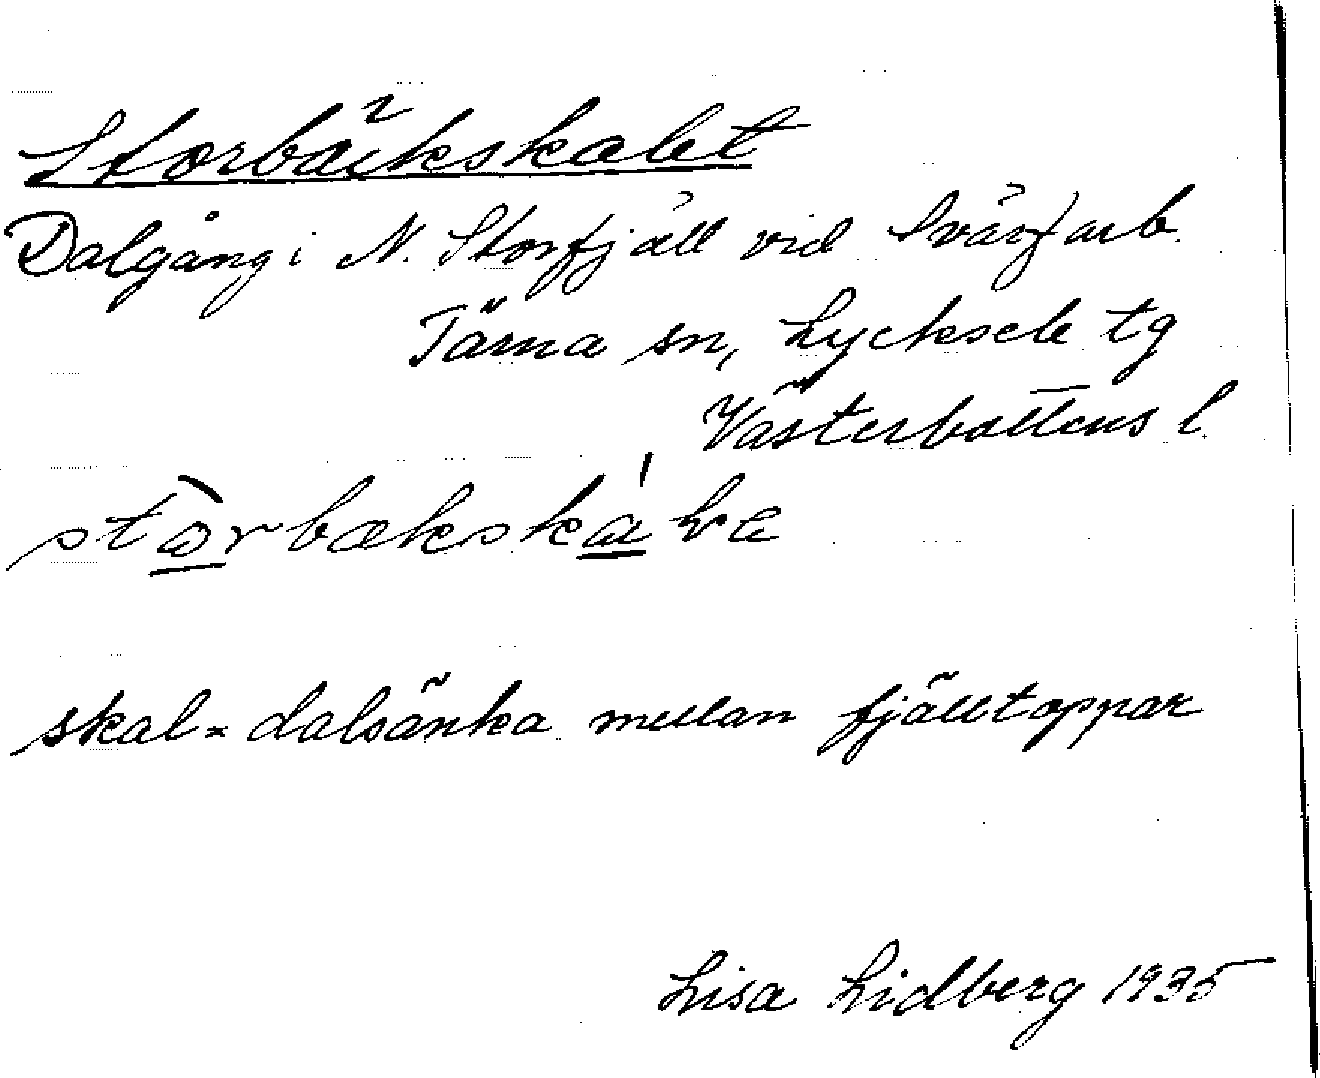 Storbäckskalet
Dalgång i N. Storfjäll vid
Tärna sn, Lycksele tg
Västerbottens l.
skal = dalsänka mellan fjälltoppar
Lisa Lidberg 1935